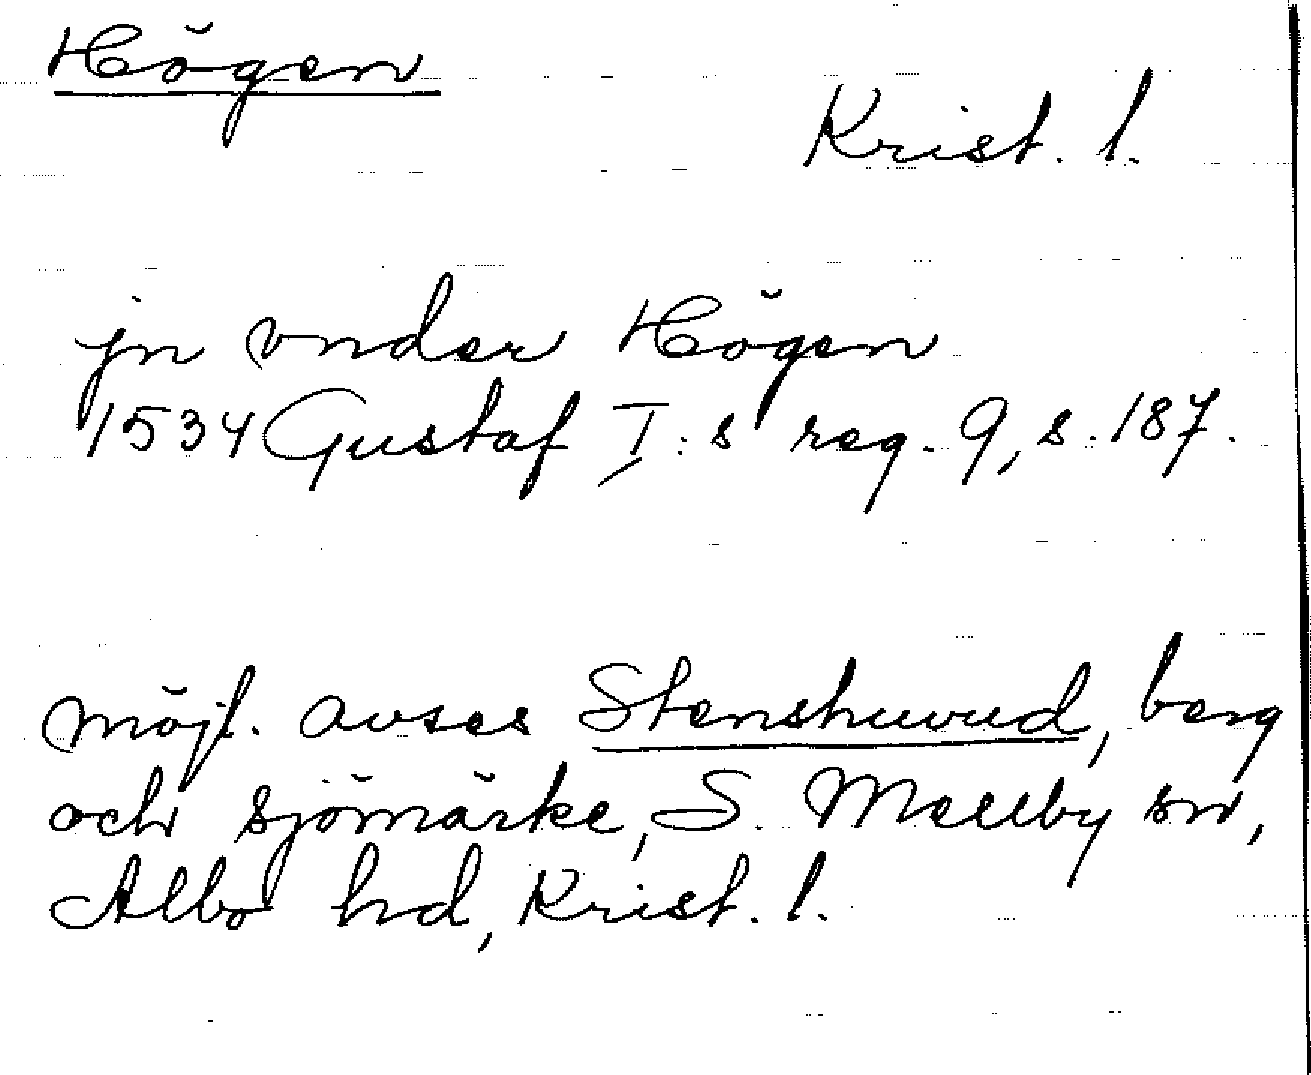 Högen
Krist. l.
jn vnder Högen
1534 Gustaf I:s reg. 9, s. 187.
möjl. avses Stenshuvud, berg
och sjömärke, S. Mellby sn,
Albo hd, Krist. l.